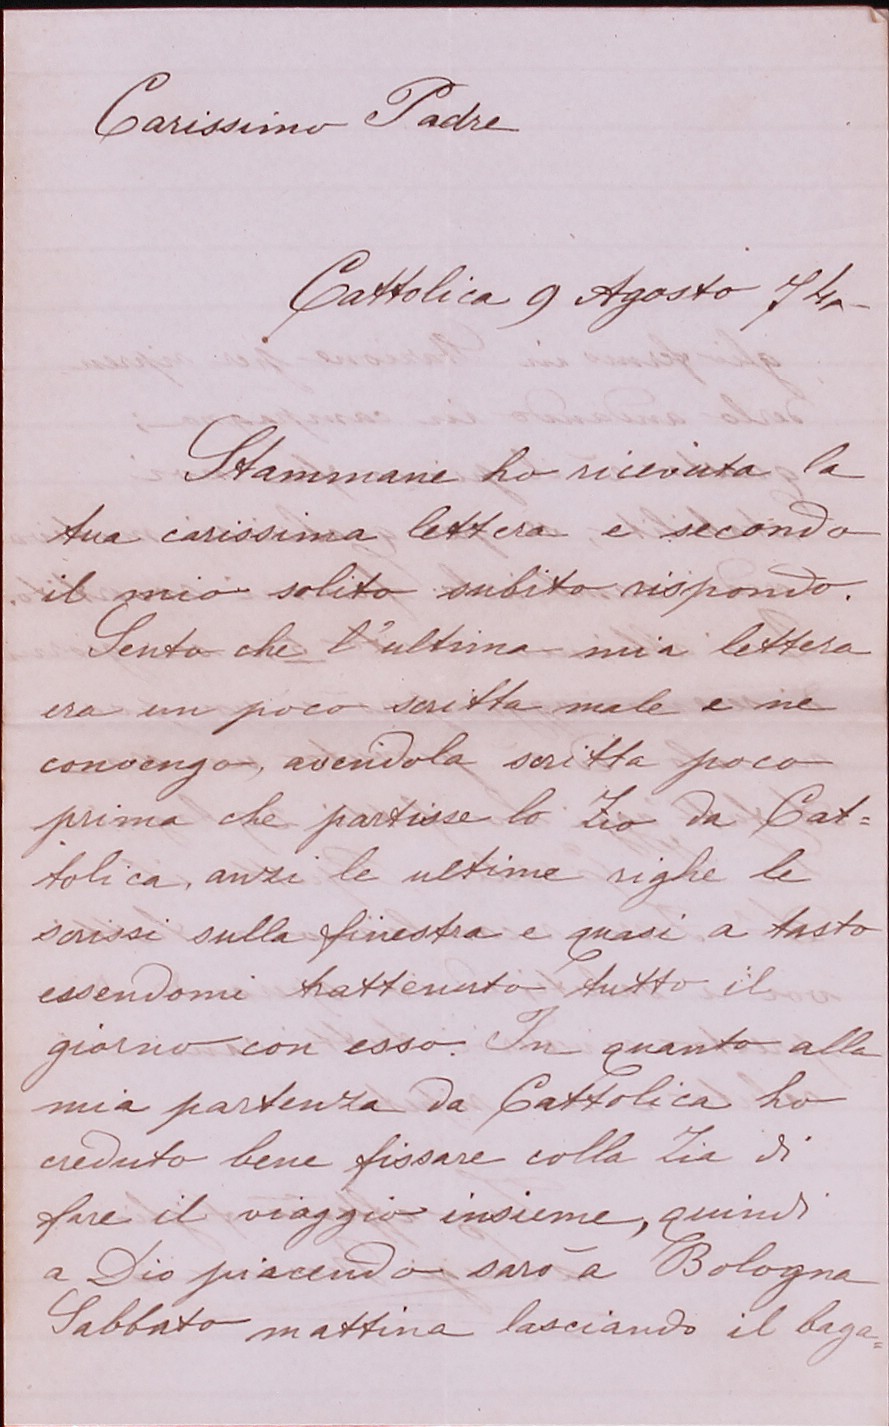 Carissimo Padre
Cattolica 9 Agosto 74
Stammane ho ricevuta la
tua carissima lettera e secondo
il mio solito subito rispondo.
Sento che l'ultima mia lettera
era un poco scritta male e ne
convengo, avendola scritta poco
prima che partisse lo Zio da Cat=
tolica, anzi le ultime righe le
scrissi sulla finestra e quasi a tasto
essendomi trattenuto tutto il
giorno con esso. In quanto alla
mia partenza da Cattolica ho
creduto bene fissare colla Zia di
fare il viaggio insieme, quindi
a Dio piacendo sarò a Bologna
Sabbato mattina lasciando il baga=